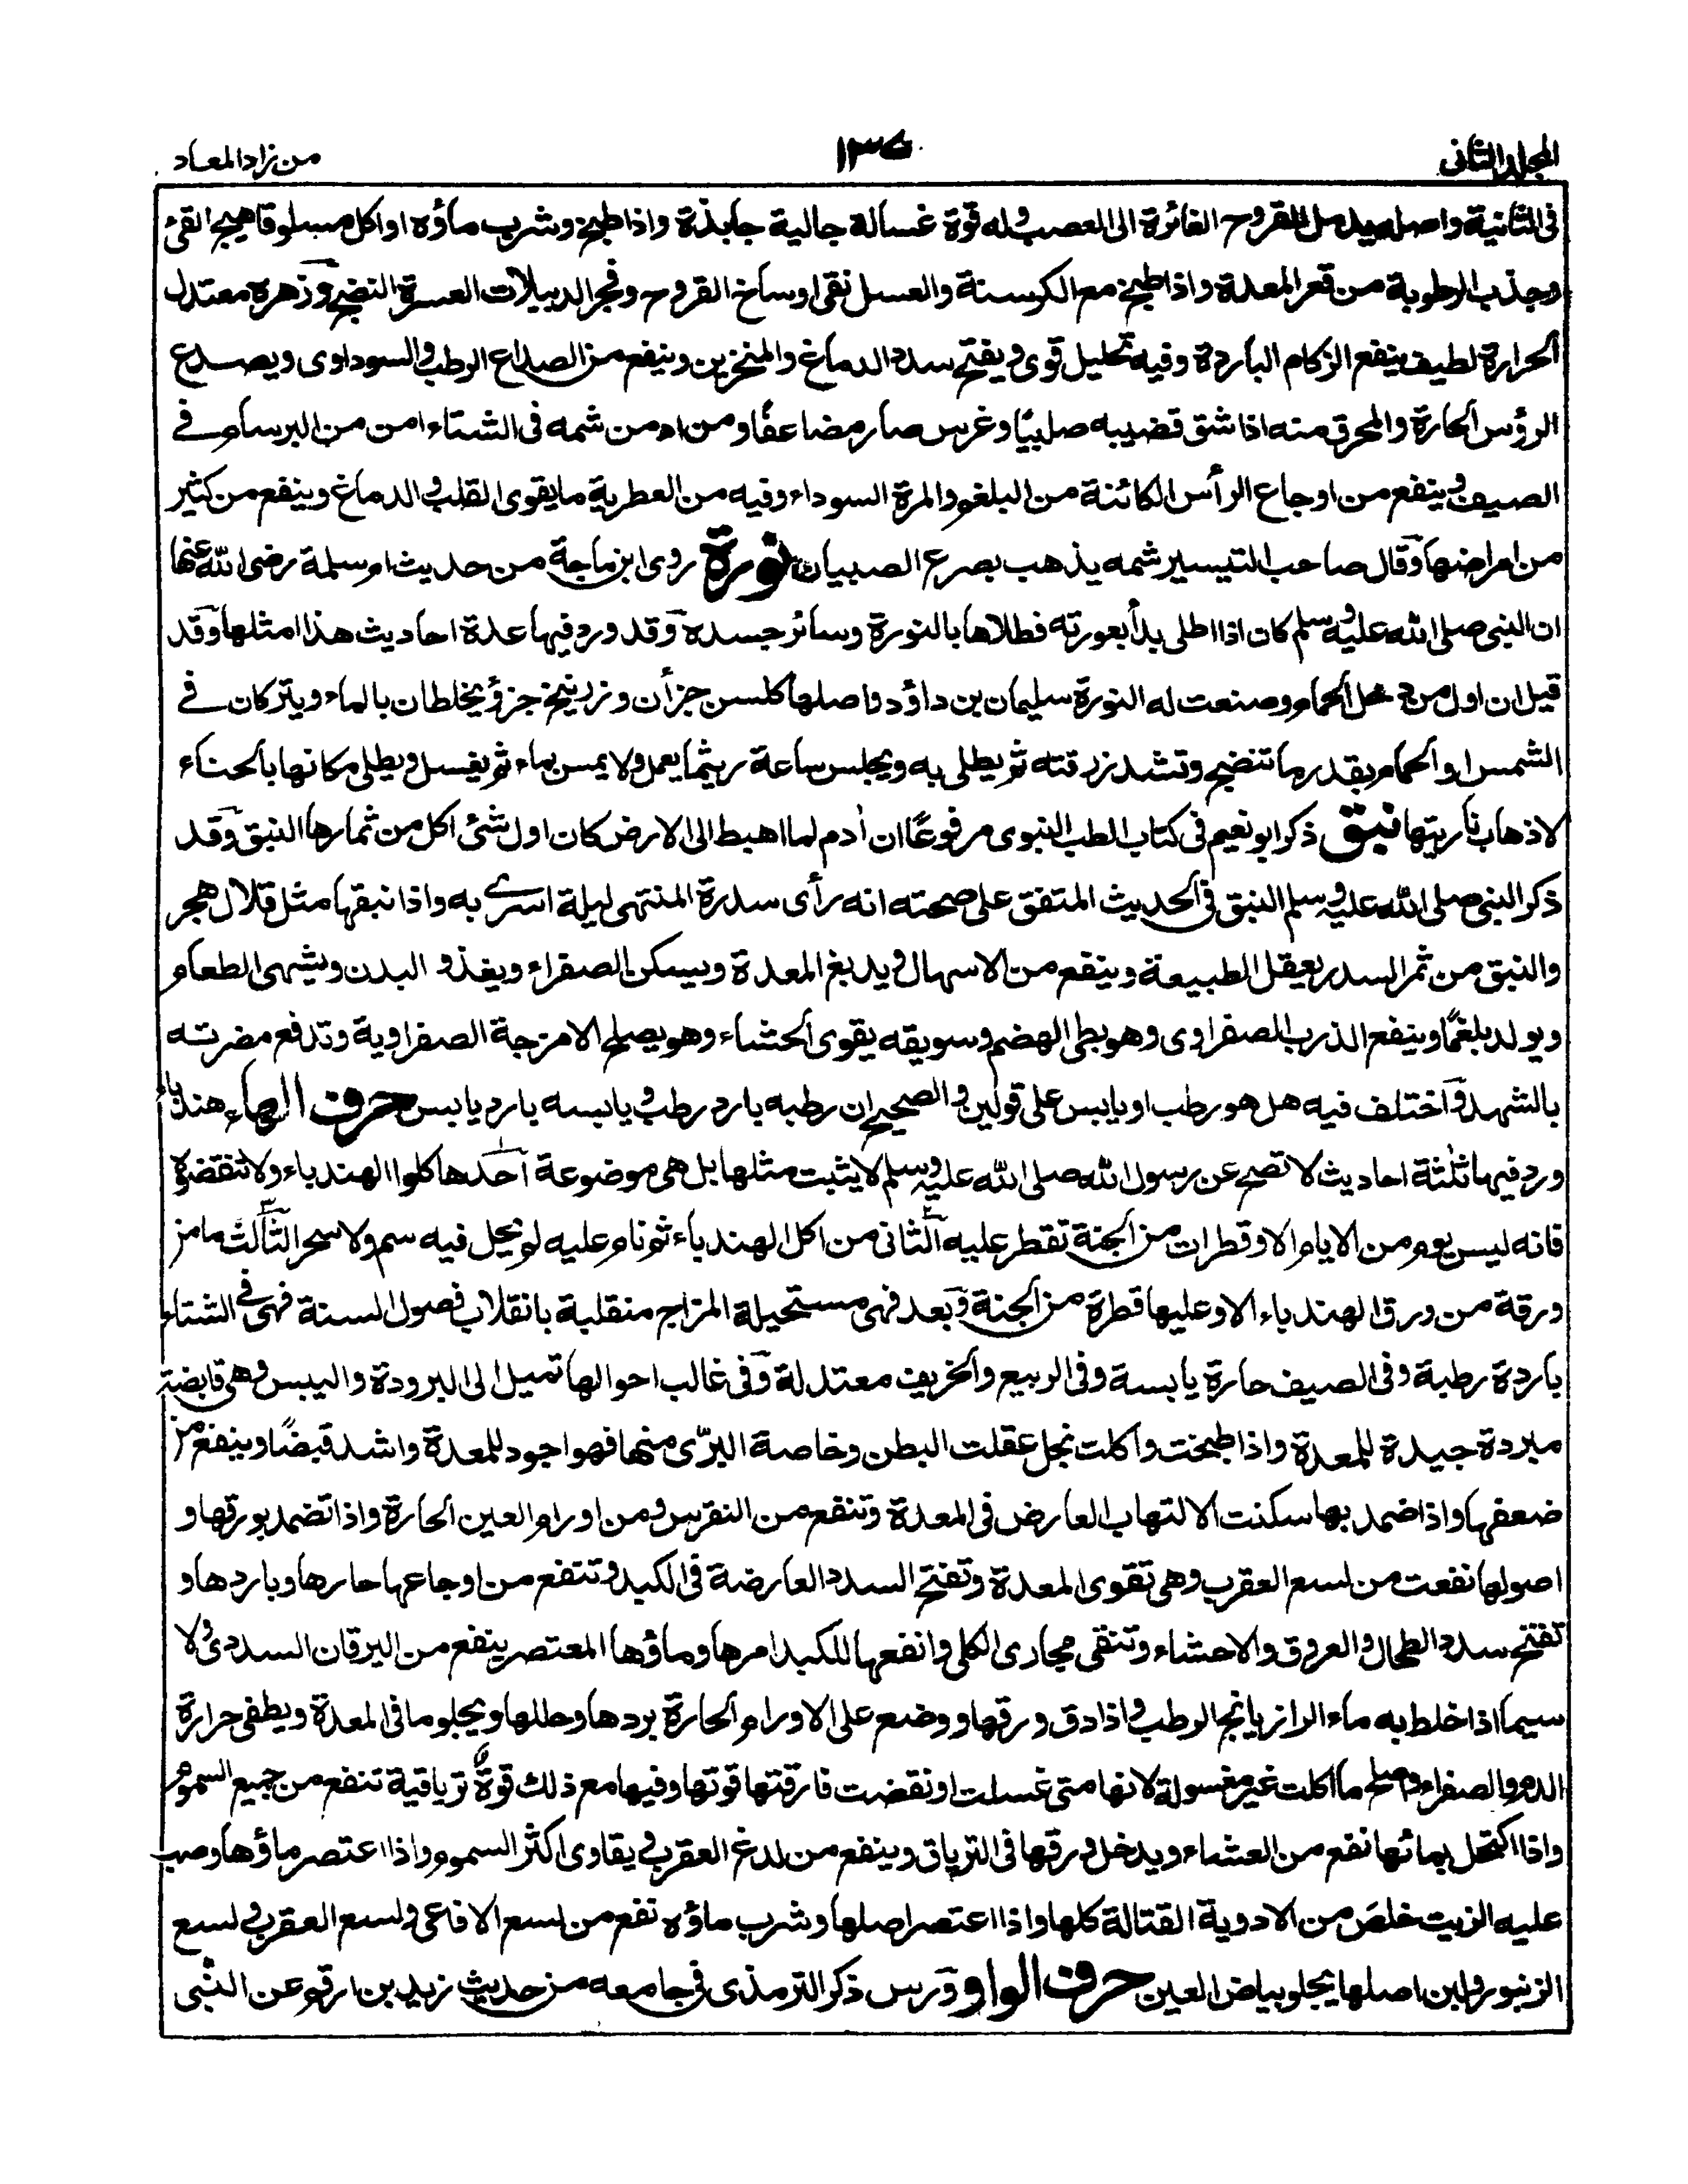 المجلد الثانى
١٣٧
من زاد المعاد
فى الثانية واصله يدمل القروح الغائرة الى العصب وله قوة غسالة جالية جابذة واذا طبخ وشرب ماؤه او اكل مسلوقا هيج القئ
وجذب الرطوبة من قعر المعدة واذا طبخ مع الكرسنة والعسل نقى اوساخ القروح وفجر الدبيلات العسرة النضج وزهره معتدل
الحرارة لطيف ينفع الزكام الباردة وفيه تحليل قوى ويفتح سدد الدماغ والمنخرين وينفع من الصداع الرطب والسوداوى ويصدع
الرؤس الحارة والمحرق منه اذا شق قضيبه صليبًا وغرس صار مضاعفًا ومن ادمن شمه فى الشتاء امن من البرسام فے
الصيف وينفع من اوجاع الرأس الكائنة من البلغم والمرة السوداء وفيه من العطرية ما يقوى القلب والدماغ وينفع من كثير
من امراضها وقال صاحب التيسير شمه يذهب بصرع الصبيان نورة روى ابن ماجة من حديث ام سلمة رضى الله عنها
ان النبى صلى الله عليه وسلم كان اذا اطلى بدأ بعورته فطلاها بالنورة وسائر جسده وقد ورد فيها عدة احاديث هذا امثلها وقد
قيل ان اول من دخل الحمام وصنعت له النورة سليمان بن داؤد واصلها كلس جزأن وزرنيخ جزؤ يخلطان بالماء ويتركان فے
الشمس او الحمام بقدر ما تنضج وتشد زرقته ثم يطلى به ويجلس ساعة ريثما يعمل ولا يمس بماء ثم يغسل ويطلى مكانها بالحناء
لاذهاب ناريتها نبق ذكر ابو نعيم فى كتاب الطب النبوى مرفوعًا ان أدم لما اهبط الى الارض كان اول شئ اكل من ثمارها النبق وقد
ذكر النبى صلى الله عليه وسلم النبق فى الحديث المتفق على صحته انه رأى سدرة المنتهى ليلة اسرے به واذا نبقها مثل قلال هجر
والنبق من ثمر السدر يعقل الطبيعة وينفع من الاسهال ويدبغ المعدة ويسكن الصفراء ويغذو البدن ويشهى الطعام
ويولد بلغمًا وينفع الذرب الصفراوى وهو بطى الهضم وسويقه يقوى الحشاء وهو يصلح الامزجة الصفراوية وتدفع مضرته
بالشهد واختلف فيه هل هو رطب او يابس على قولين والصحيح ان رطبه بارد رطب ويابسه بارد يابس حرف الهاء هندباء
ورد فيها ثلثة احاديث لا تصح عن رسول الله صلى الله عليه وسلم لا يثبت مثلها بل هى موضوعة احدها كلوا الهندباء ولا تنفضوه
فانه ليس يوم من الايام الا وقطرات من الجنة تقطر عليه الثانى من اكل الهندباء ثم نام عليه لم يحل فيه سم ولا سحر الثالث ما من
ورقة من ورق الهندباء الا وعليها قطرة من الجنة وبعد فهى مستحيلة المزاج منقلبة بانقلاب فصول السنة فهى فے الشتاء
باردة رطبة وفى الصيف حارة يابسة وفى الربيع والخريف معتدلة وفى غالب احوالها تميل الى البرودة واليبس وهى قابضة
مبردة جيدة للمعدة واذا طبخت واكلت بخل عقلت البطن وخاصة البرّى منها فهو اجود للمعدة واشد قبضًا وينفع من
ضعفها واذا ضمد بها سكنت الالتهاب العارض فى المعدة وتنفع من النقرس ومن اورام العين الحارة واذا تضمد بورقها و
اصولها نفعت من لسع العقرب وهى تقوى المعدة وتفتح السدد العارضة فى الكبد وتنفع من اوجاعها حارها وباردها و
تفتح سدد الطحال والعروق والاحشاء وتنقى مجارى الكلى وانفعها للكبد امرها وماؤها المعتصر ينفع من اليرقان السددى ولا
سيما اذا خلط به ماء الرازيانج الرطب واذا دق ورقها ووضع على الاورام الحارة بردها وحللها ويجلو ما فى المعدة ويطفى حرارة
الدم والصفراء واصلح ما اكلت غير مغسولة لانها متى غسلت او نفضت فارقتها قوتها وفيها مع ذلك قوة ترياقية تنفع من جميع السموم
واذا اكتحل بمائها نفع من العشاء ويدخل ورقها فى الترياق وينفع من لدغ العقرب ويقاوى اكثر السموم واذا اعتصر ماؤها وصب
عليه الزيت خلص من الادوية القتالة كلها واذا اعتصر اصلها وشرب ماؤه نفع من لسع الافاعى ولسع العقرب ولسع
الزنبور ولبن اصلها يجلو بياض العين حرف الواو ورس ذكر الترمذى فى جامعه من حديث زيد بن ارقم عن النبى